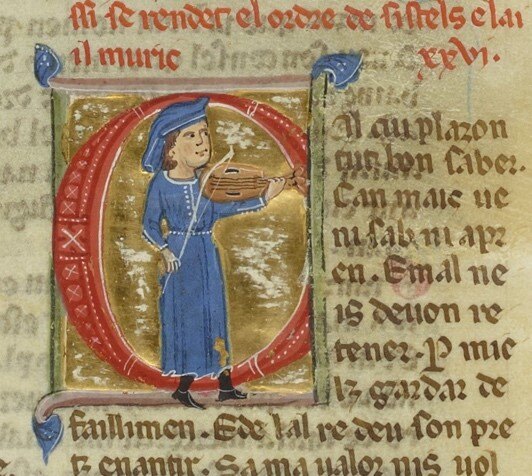 ssi se rendet el ordre de sistels e lai
il muric. xxvi.
CIl cui plazon
tuit bon saber.
San mais ue
ni sab ni apr
en. E mal ne
is deuon re
tener. P mie
lz gardar de
faillimen. E de lal re deu son pre
tz enantir. Sa ma ualer nis uol